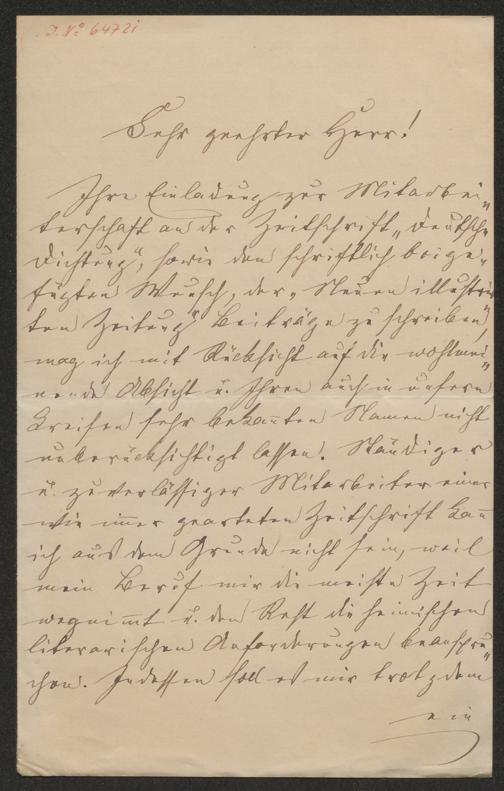 I. N° 64721
Sehr geehrter Herr!
Ihre Einladung zur Mitarbei-
terschaft an der Zeitschrift „Deutsche
Dichtung“, sowie den schriftlich beige-
fügten Wunsch, der „Neuen illustrir-
ten Zeitung“ Beiträge zu schreiben,
mag ich mit Rücksicht auf die wohlmei-
nende Absicht u. Ihren auch in unsern
Kreisen sehr bekan̅ten Namen nicht
unberücksichtigt lassen. Ständiger
u. zuverlässiger Mitarbeiter einer
wie im̅er gearteten Zeitschrift kan̅
ich aus dem Grunde nicht sein, weil
mein Beruf mir die meiste Zeit
wegnim̅t u. den Rest die heimischen
literarischen Anforderungen beanspru-
chen. Indessen soll es mir trotzdem
ein